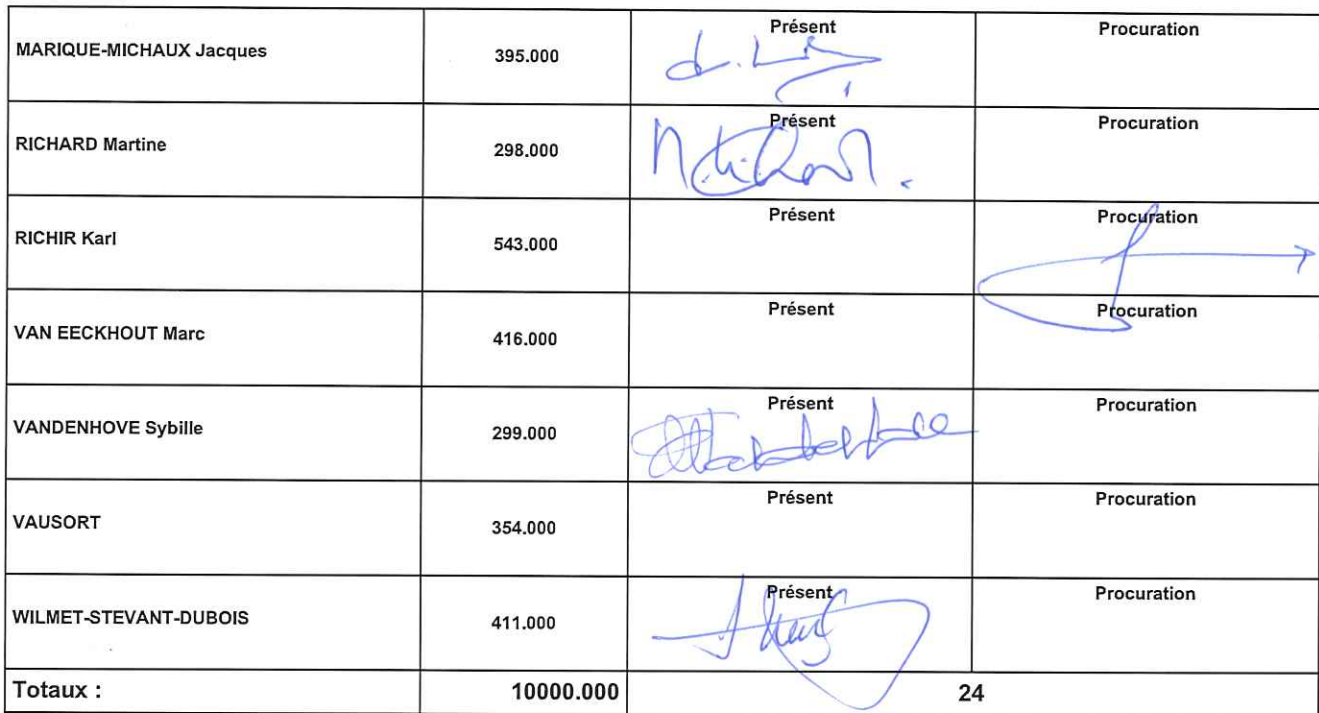 MARIQUE-MICHAUX Jacques 395.000 Présent Procuration
RICHARD Martine 298.000 Présent Procuration
RICHIR Karl 543.000 Présent Procuration
VAN EECKHOUT Marc 416.000 Présent Procuration
VANDENHOVE Sybille 299.000 Présent Procuration
VAUSORT 354.000 Présent Procuration
WILMET-STEVANT-DUBOIS 411.000 Présent Procuration
Totaux : 10000.000 24